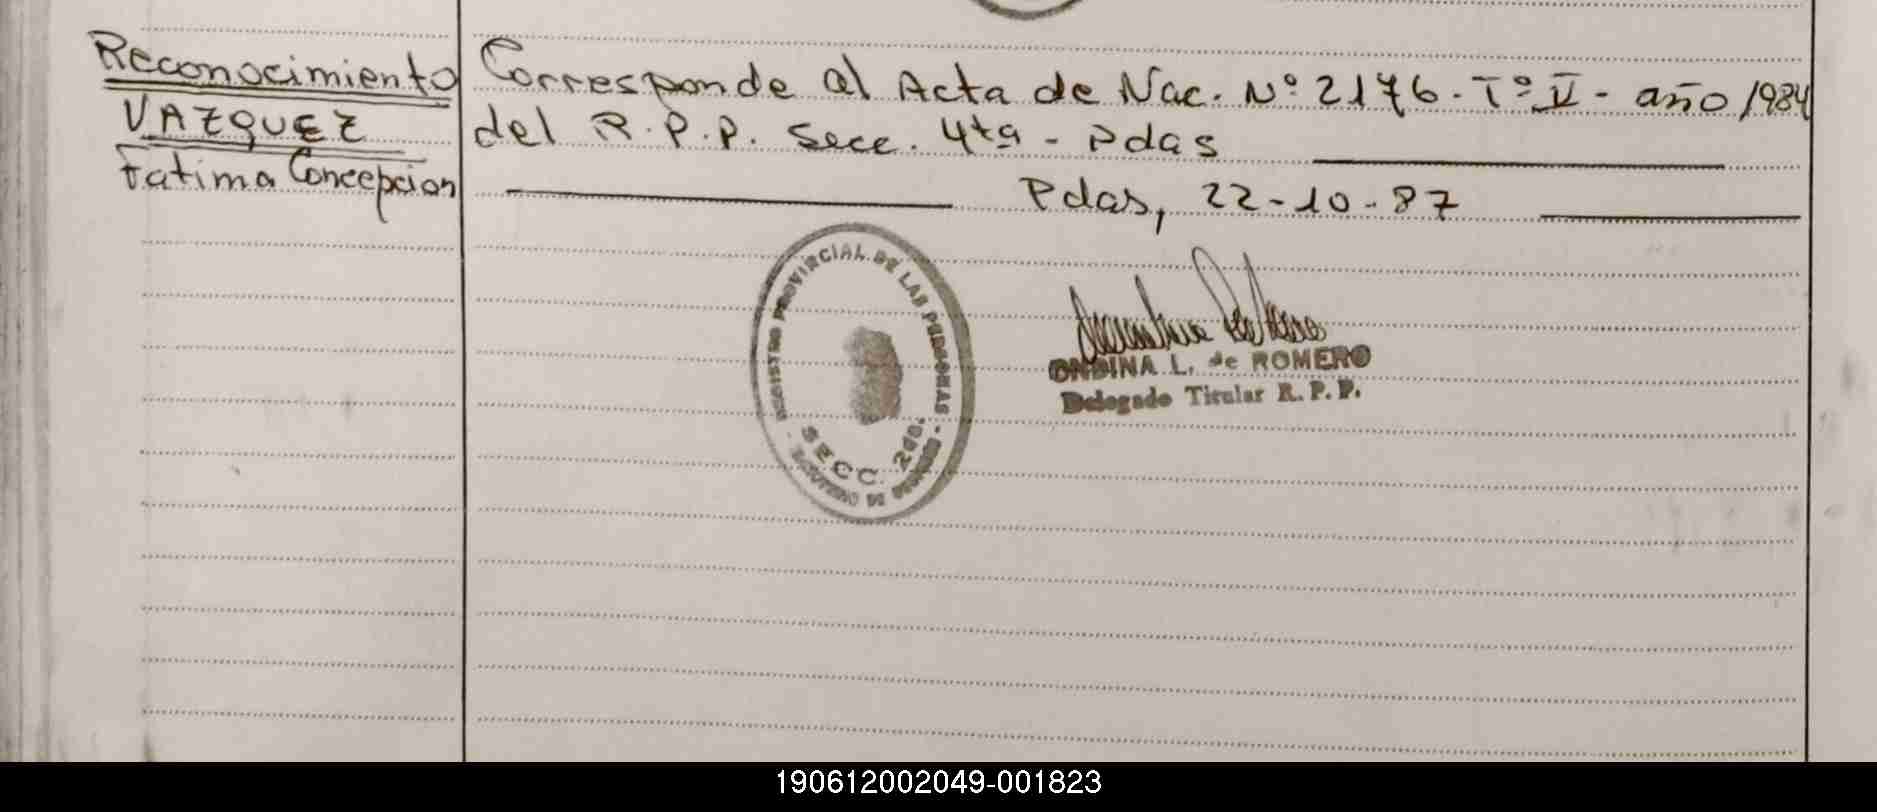 Reconocimiento
VAZQUEZ
Fatima Concepcion
Corresponde al Acta de Nac. Nº 2176. Tº V - año 1984
del R.P.P. Secc. 4ta - Pdas
Pdas, 22-10-87
REGISTRO PROVINCIAL DE LAS PERSONAS
SECC. 2da.
ONDINA L. de ROMERO
Delegado Titular R. P. P.
190612002049-001823